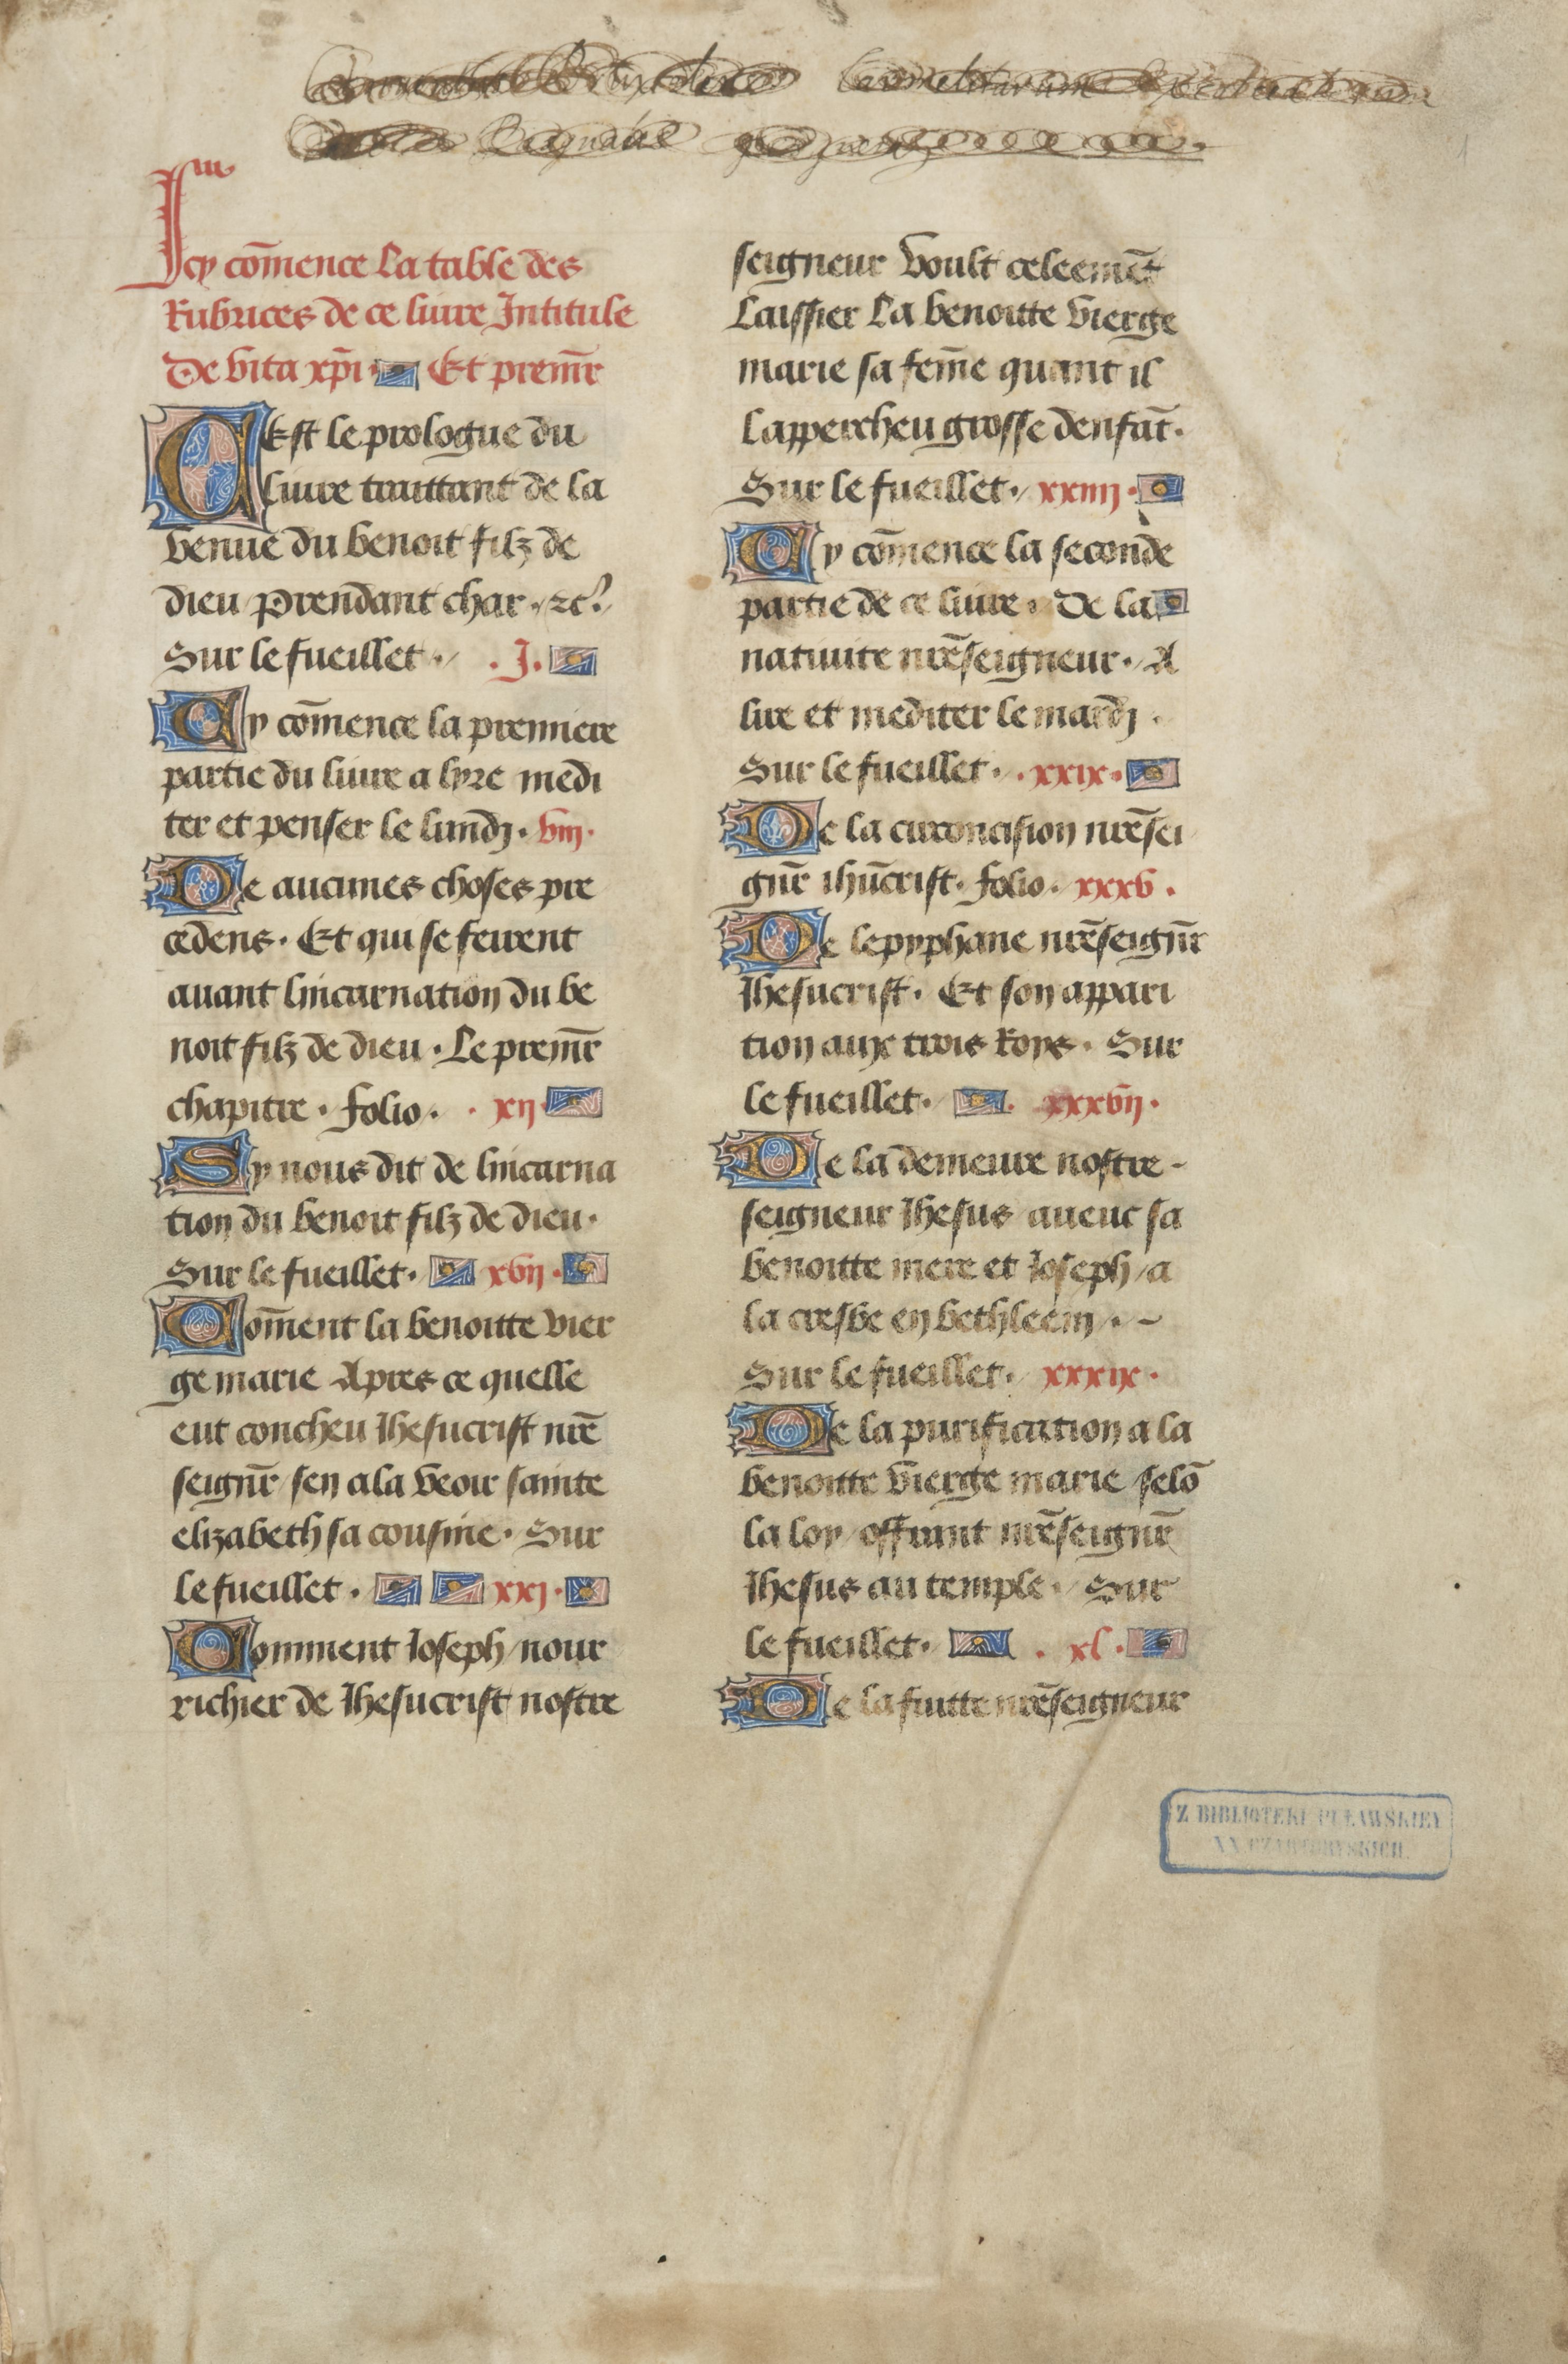 Icy cōmence La table des
Rubrices de ce liure Intitule
De vita xp̄i · Et premīr
Cest le prologue du
liure traittant de la
venue du benoit filz de
dieu prendant char · ⁊c̃ ·/
Sur le fueillet ·/ · J ·
Cy cōmence la premiere
partie du liure a lyre medi
ter et penser le lundj · viij ·
De aucunes choses pre
cedens · Et qui se feirent
auant lincarnation du be
noit filz de dieu · Le premīr
chapitre · folio · · xij ·
Sy nous dit de lincarna
tion du benoit filz de dieu ·
Sur le fueillet · xvij ·
Cōment la benoitte vier
ge marie Apres ce quelle
eut concheu Jhesucrist nr̄e
seign̄r / sen ala veoir sainte
elizabeth sa cousine · Sur
le fueillet · xxj ·
Comment Joseph / nour
richier de Jhesucrist nostre
seigneur voult celeemēt
Laissier La benoitte vierge
marie sa fem̄e quant il
lappercheu grosse denfāt ·
Sur le fueillet ·/ xxiiij ·
Cy cōmence la seconde
partie de ce liure · De la
natiuite nr̄e seigneur ·/ A
lire et mediter le mardj ·
Sur le fueillet · · xxix ·
De la circoncision nr̄e sei
gn̄r ihūcrist · folio · xxxv ·
De lepyphane nr̄e seign̄r
Jhesucrist · Et son appari
tion aux trois Roys · Sur
le fueillet · xxxvij ·
De la demeure nostre -
seigneur Jhesus aueuc sa
benoitte mere et Joseph / a
la cresbe en bethleem · ~
Sur le fueillet · xxxix ·
De la purification a la
benoitte vierge marie / selō
la loy / offrant nr̄e seign̄r
Jhesus au temple ·/ Sur
le fueillet · · xl ·
De la fuitte nr̄e seigneur
Z BIBLIOTEKI PUŁAWSKIEY
XX. CZARTORYSKICH.